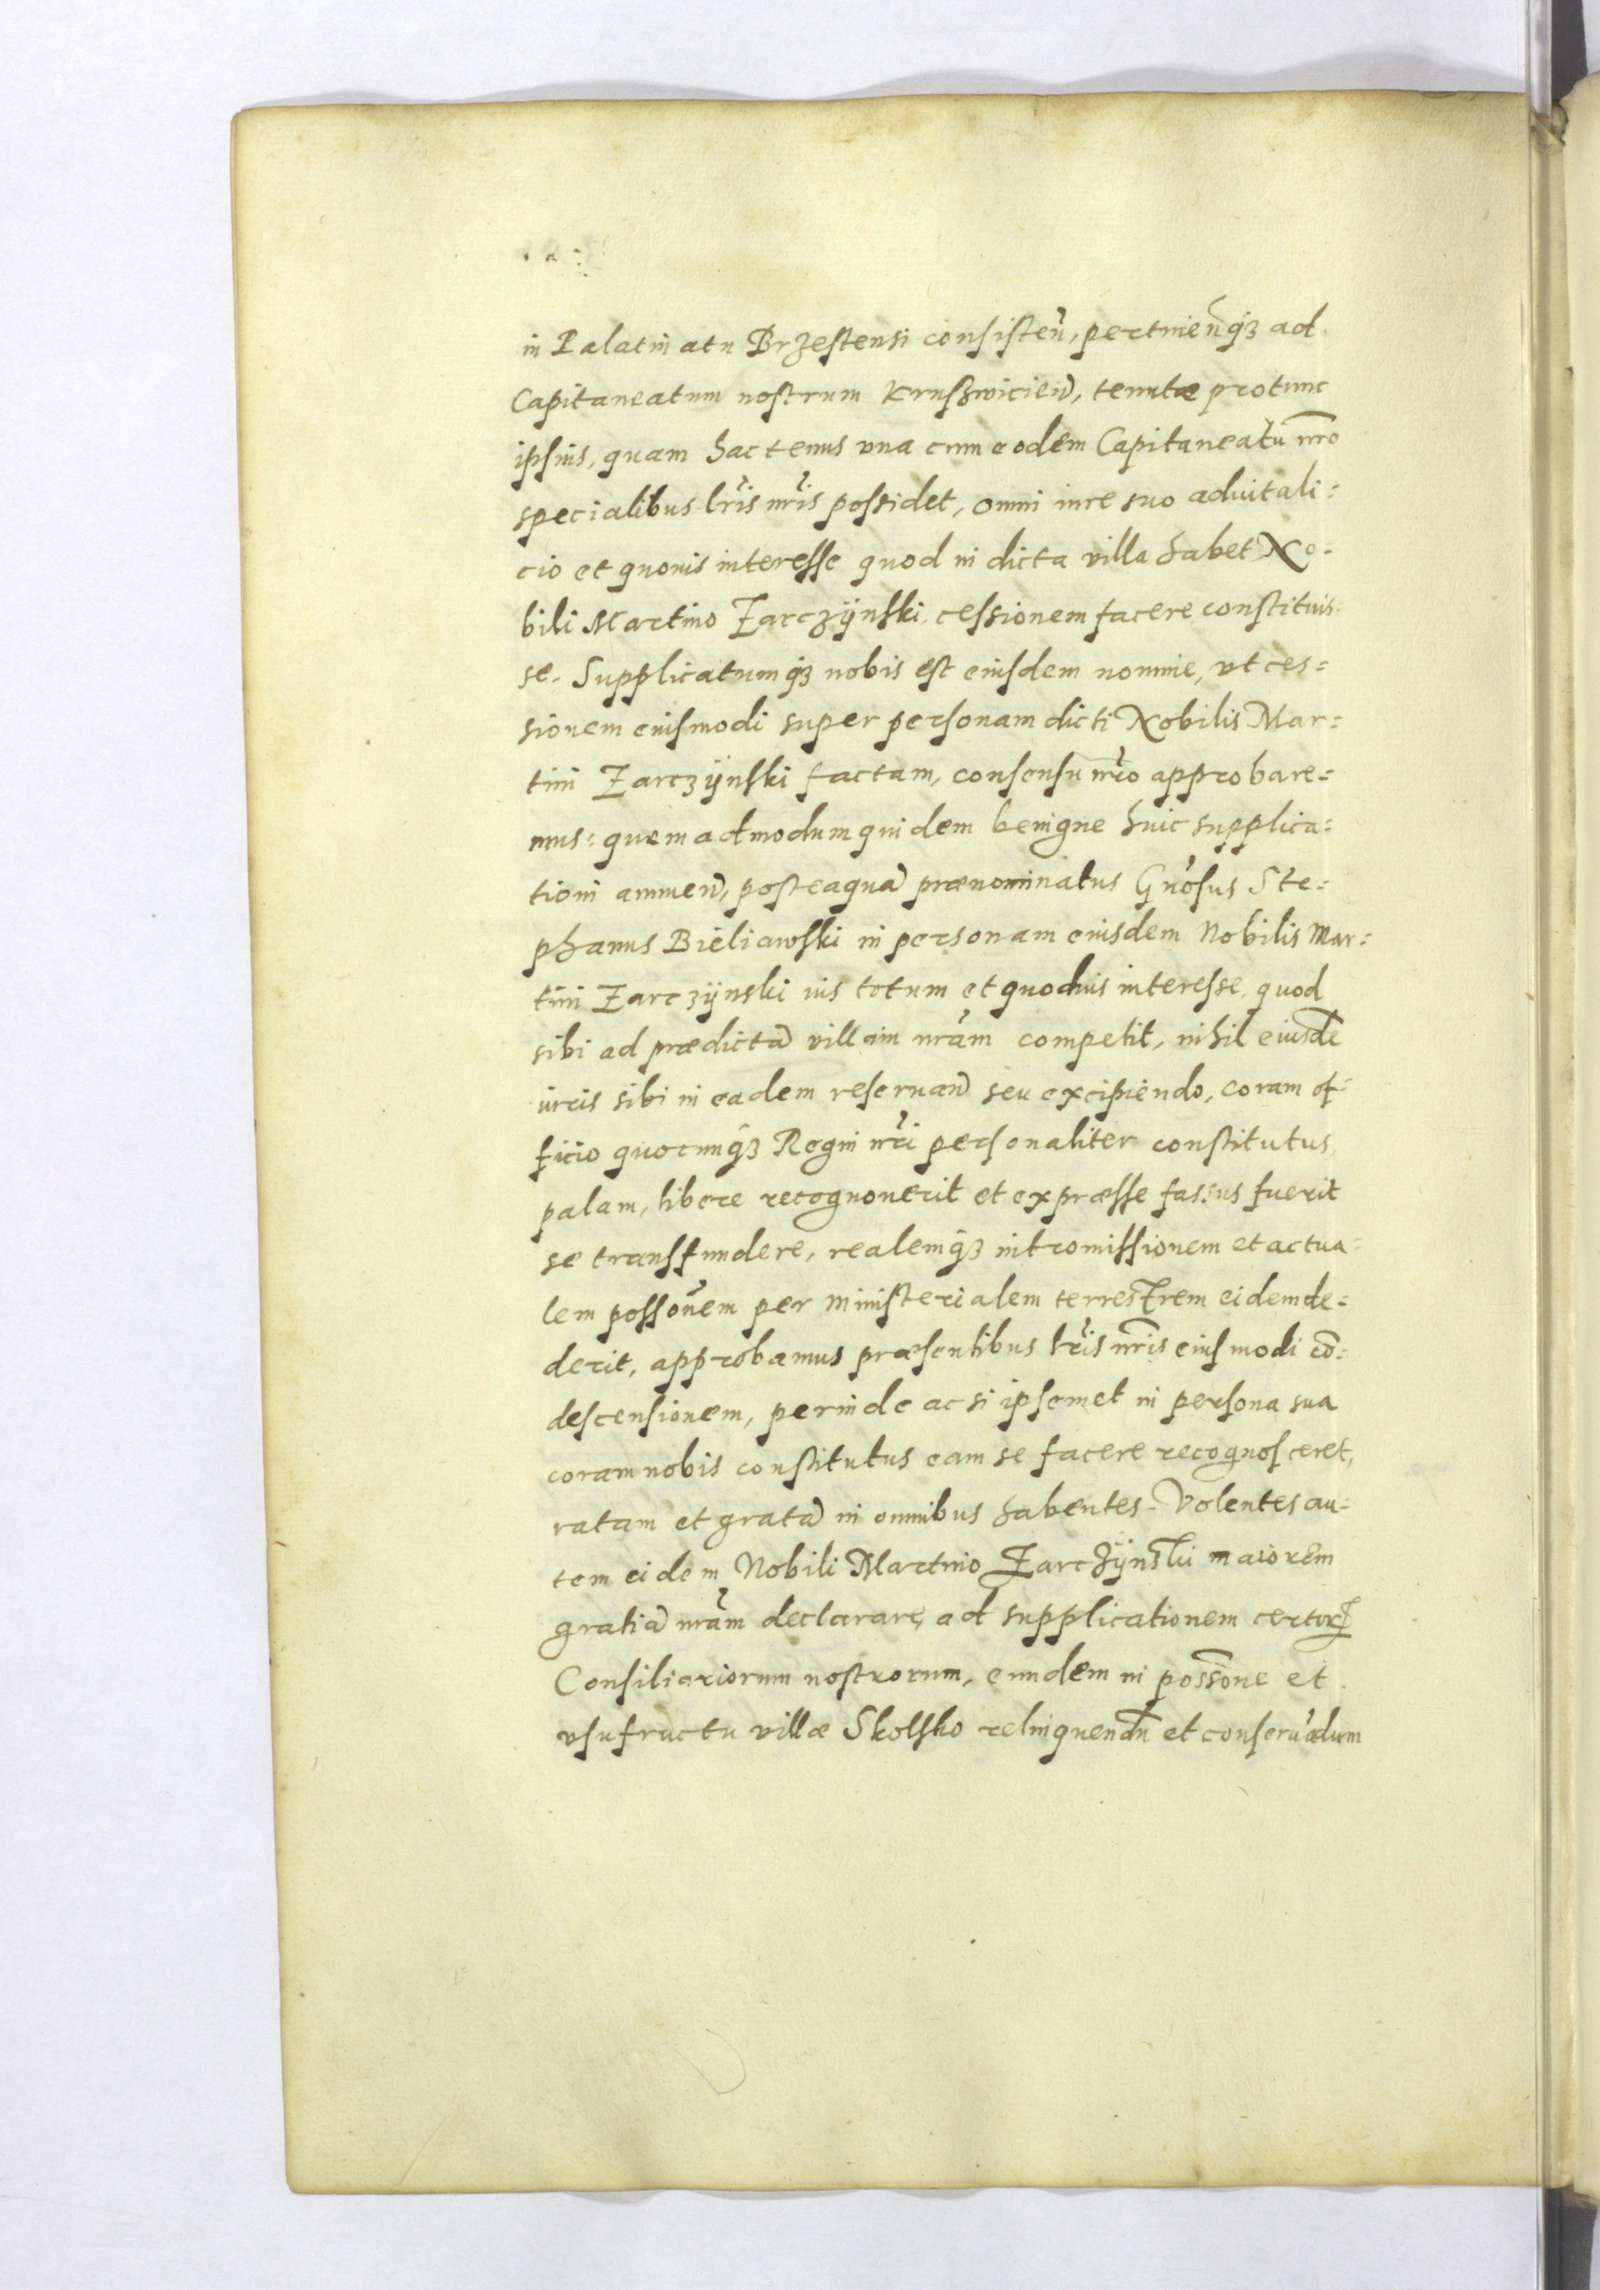 in Palatinatu Brzestensi consisten̄, pertinen̄q₃ ad
Capitaneatum nostrum Kruszwicien̄, tenutæ protunc
ipsius, quam hactenus vna cum eodem Capitaneatu nr̄o
specialibus lr̄is nr̄is possidet, omni iure suo aduitali=
cio et quouis interesse quod in dicta villa habet No-
bili Martino Zarczÿnski cessionem facere constituis-
se. Supplicatumq₃ nobis est eiusdem nomine, vt ces=
sionem eiusmodi super personam dicti Nobilis Mar=
tini Zarczÿnski factam, consensu nr̄o approbare=
mus: quemadmodum quidem benigne huic supplica=
tioni annuen̄, posteaquā prænominatus Gn̄osus Ste=
phanus Bieliawski in personam eiusdem Nobilis Mar=
tini Zarczÿnski ius totum et quoduis interesse, quod
sibi ad prædictā villam nr̄am competit, nihil eiusdē
iuris sibi in eadem reseruan̄ seu excipiendo, coram of=
ficio quocunq₃ Regni nr̄i personaliter constitutus,
palam, libere recognouerit et expræsse fassus fuerit
se transfundere, realemq₃ intromissionem et actua=
lem posson̄em per ministerialem terrestrem eidem de=
derit, approbamus præsentibus lr̄is nr̄is eiusmodi cō=
descensionem, perinde ac si ipsemet in persona sua
coram nobis constitutus eam se facere recognosceret,
ratam et gratā in omnibus habentes. Volentes au=
tem eidem Nobili Martino Zarczÿnski maiorem
gratiā nr̄am declarare, ad supplicationem certorꝫ
Consiliariorum nostrorum, eundem in possōne et
vsufructu villæ Skolsko relinquendū et conseruādum